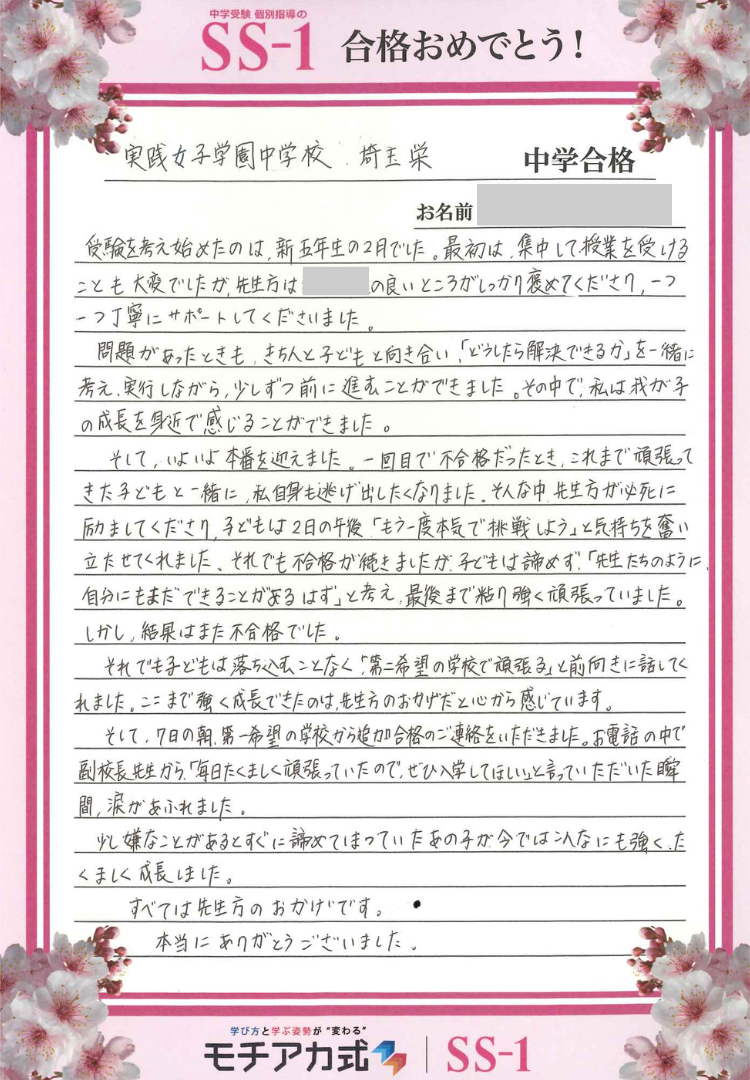 中学受験 個別指導の
SS-1 合格おめでとう！
実践女子学園中学校 埼玉栄 中学合格
お名前
受験を考え始めたのは、新五年生の2月でした。最初は、集中して授業を受ける
ことも大変でしたが、先生方は の良いところがしっかり褒めてくださり、一つ
一つ丁寧にサポートしてくださいました。
問題があったときも、きちんと子どもと向き合い、「どうしたら解決できるか」を一緒に
考え、実行しながら、少しずつ前に進むことができました。その中で、私は我が子
の成長を身近で感じることができました。
そして、いよいよ本番を迎えました。一回目で不合格だったとき、これまで頑張って
きた子どもと一緒に、私自身も逃げ出したくなりました。そんな中、先生方が必死に
励ましてくださり、子どもは2日の午後「もう一度本気で挑戦しよう」と気持ちを奮い
立たせてくれました、それでも不合格が続きましたが、子どもは諦めず、「先生たちのように、
自分にもまだできることがあるはず」と考え、最後まで粘り強く頑張っていました。
しかし、結果はまた不合格でした。
それでも子どもは落ち込むことなく、「第二希望の学校で頑張る」と前向きに話してく
れました。ここまで強く成長できたのは、先生方のおかげだと心から感じています。
そして、7日の朝、第一希望の学校から追加合格のご連絡をいただきました。お電話の中で
副校長先生から、「毎日たくましく頑張っていたので、ぜひ入学してほしい」と言っていただいた瞬
間、涙があふれました。
少し嫌なことがあるとすぐに諦めてしまっていたあの子が、今ではこんなにも強く、た
くましく成長しました。
すべては先生方のおかげです。
本当にありがとうございました。
学び方と学ぶ姿勢が“変わる”
モチアカ式 SS-1